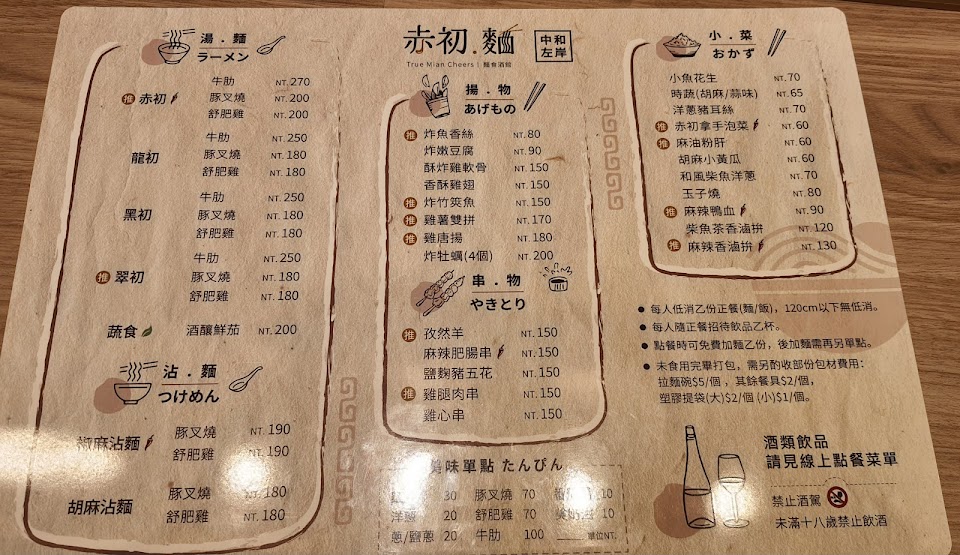 湯.麵
ラーメン
推 赤初
牛肋 NT.270
豚叉燒 NT.200
舒肥雞 NT.200
龍初
牛肋 NT.250
豚叉燒 NT.180
舒肥雞 NT.180
黑初
牛肋 NT.250
豚叉燒 NT.180
舒肥雞 NT.180
推 翠初
牛肋 NT.250
豚叉燒 NT.180
舒肥雞 NT.180
蔬食 酒釀鮮茄 NT.200
沾.麵
つけめん
椒麻沾麵
豚叉燒 NT.190
舒肥雞 NT.190
胡麻沾麵
豚叉燒 NT.180
舒肥雞 NT.180
赤初.麵
中和左岸
True Mian Cheers | 麵食酒館
揚.物
あげもの
推 炸魚香絲 NT.80
炸嫩豆腐 NT.90
酥炸雞軟骨 NT.150
香酥雞翅 NT.150
推 炸竹筴魚 NT.150
推 雞薯雙拼 NT.170
推 雞唐揚 NT.180
炸牡蠣(4個) NT.200
串.物
やきとり
推 孜然羊 NT.150
麻辣肥腸串 NT.150
鹽麴豬五花 NT.150
推 雞腿肉串 NT.150
雞心串 NT.150
味單點 たんぴん
30 豚叉燒 70 10
洋蔥 20 舒肥雞 70 10
蔥/鹽蔥 20 牛肋 100 單位NT.
小.菜
おかず
小魚花生 NT.70
時蔬(胡麻/蒜味) NT.65
洋蔥豬耳絲 NT.70
推 赤初拿手泡菜 NT.60
推 麻油粉肝 NT.60
胡麻小黃瓜 NT.60
和風柴魚洋蔥 NT.70
玉子燒 NT.80
推 麻辣鴨血 NT.90
柴魚茶香滷拼 NT.120
推 麻辣香滷拚 NT.130
● 每人低消乙份正餐(麵/飯)，120cm以下無低消。
● 每人隨正餐招待飲品乙杯。
● 點餐時可免費加麵乙份，後加麵需再另單點。
● 未食用完畢打包，需另酌收部份包材費用：
拉麵碗$5/個，其餘餐具$2/個，
塑膠提袋(大)$2/個 (小)$1/個。
酒類飲品
請見線上點餐菜單
禁止酒駕
未滿十八歲禁止飲酒